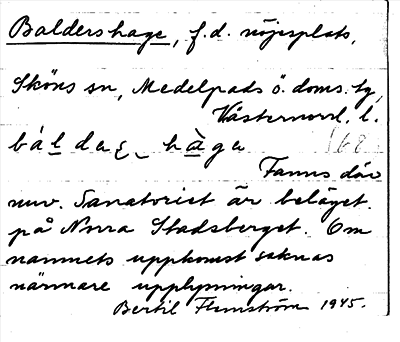 Baldershage, f.d. nöjesplats,
Sköns sn, Medelpads ö. doms. tg,
Västernorrl. l.
Fanns där
nuv. Sanatoriet är beläget.
på Norra Stadsberget. Om
namnets uppkomst saknas
närmare upplysningar.
Bertil Flemström 1945.